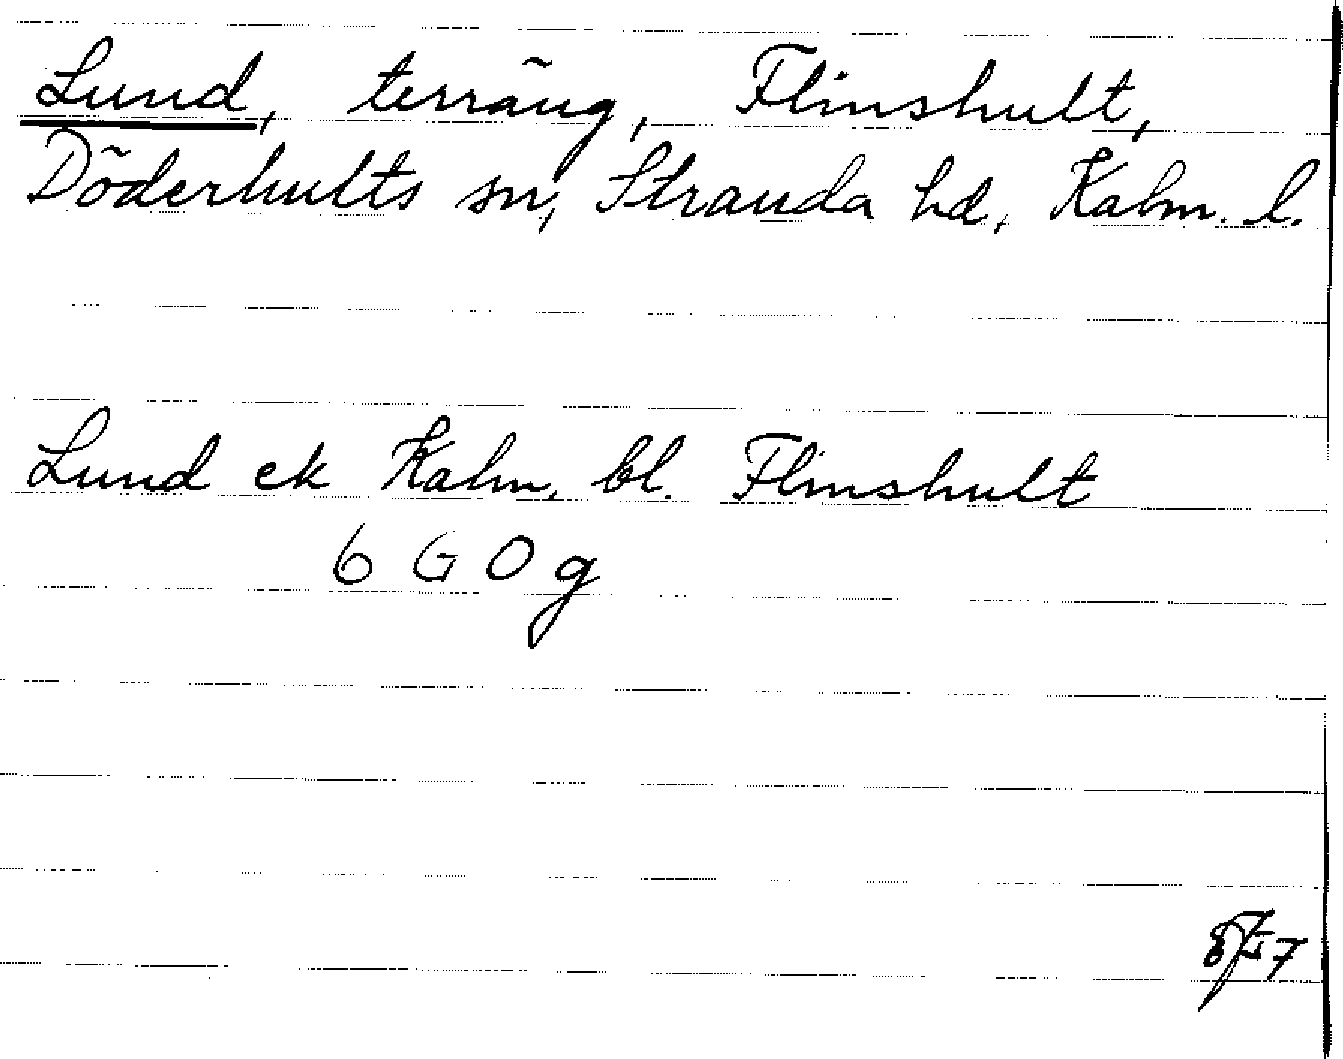 Lund, terräng, Flinshult,
Döderhults sn, Stranda hd, Kalm. l.
Lund ek Kalm. bl. Flinshult
6 G 0 g